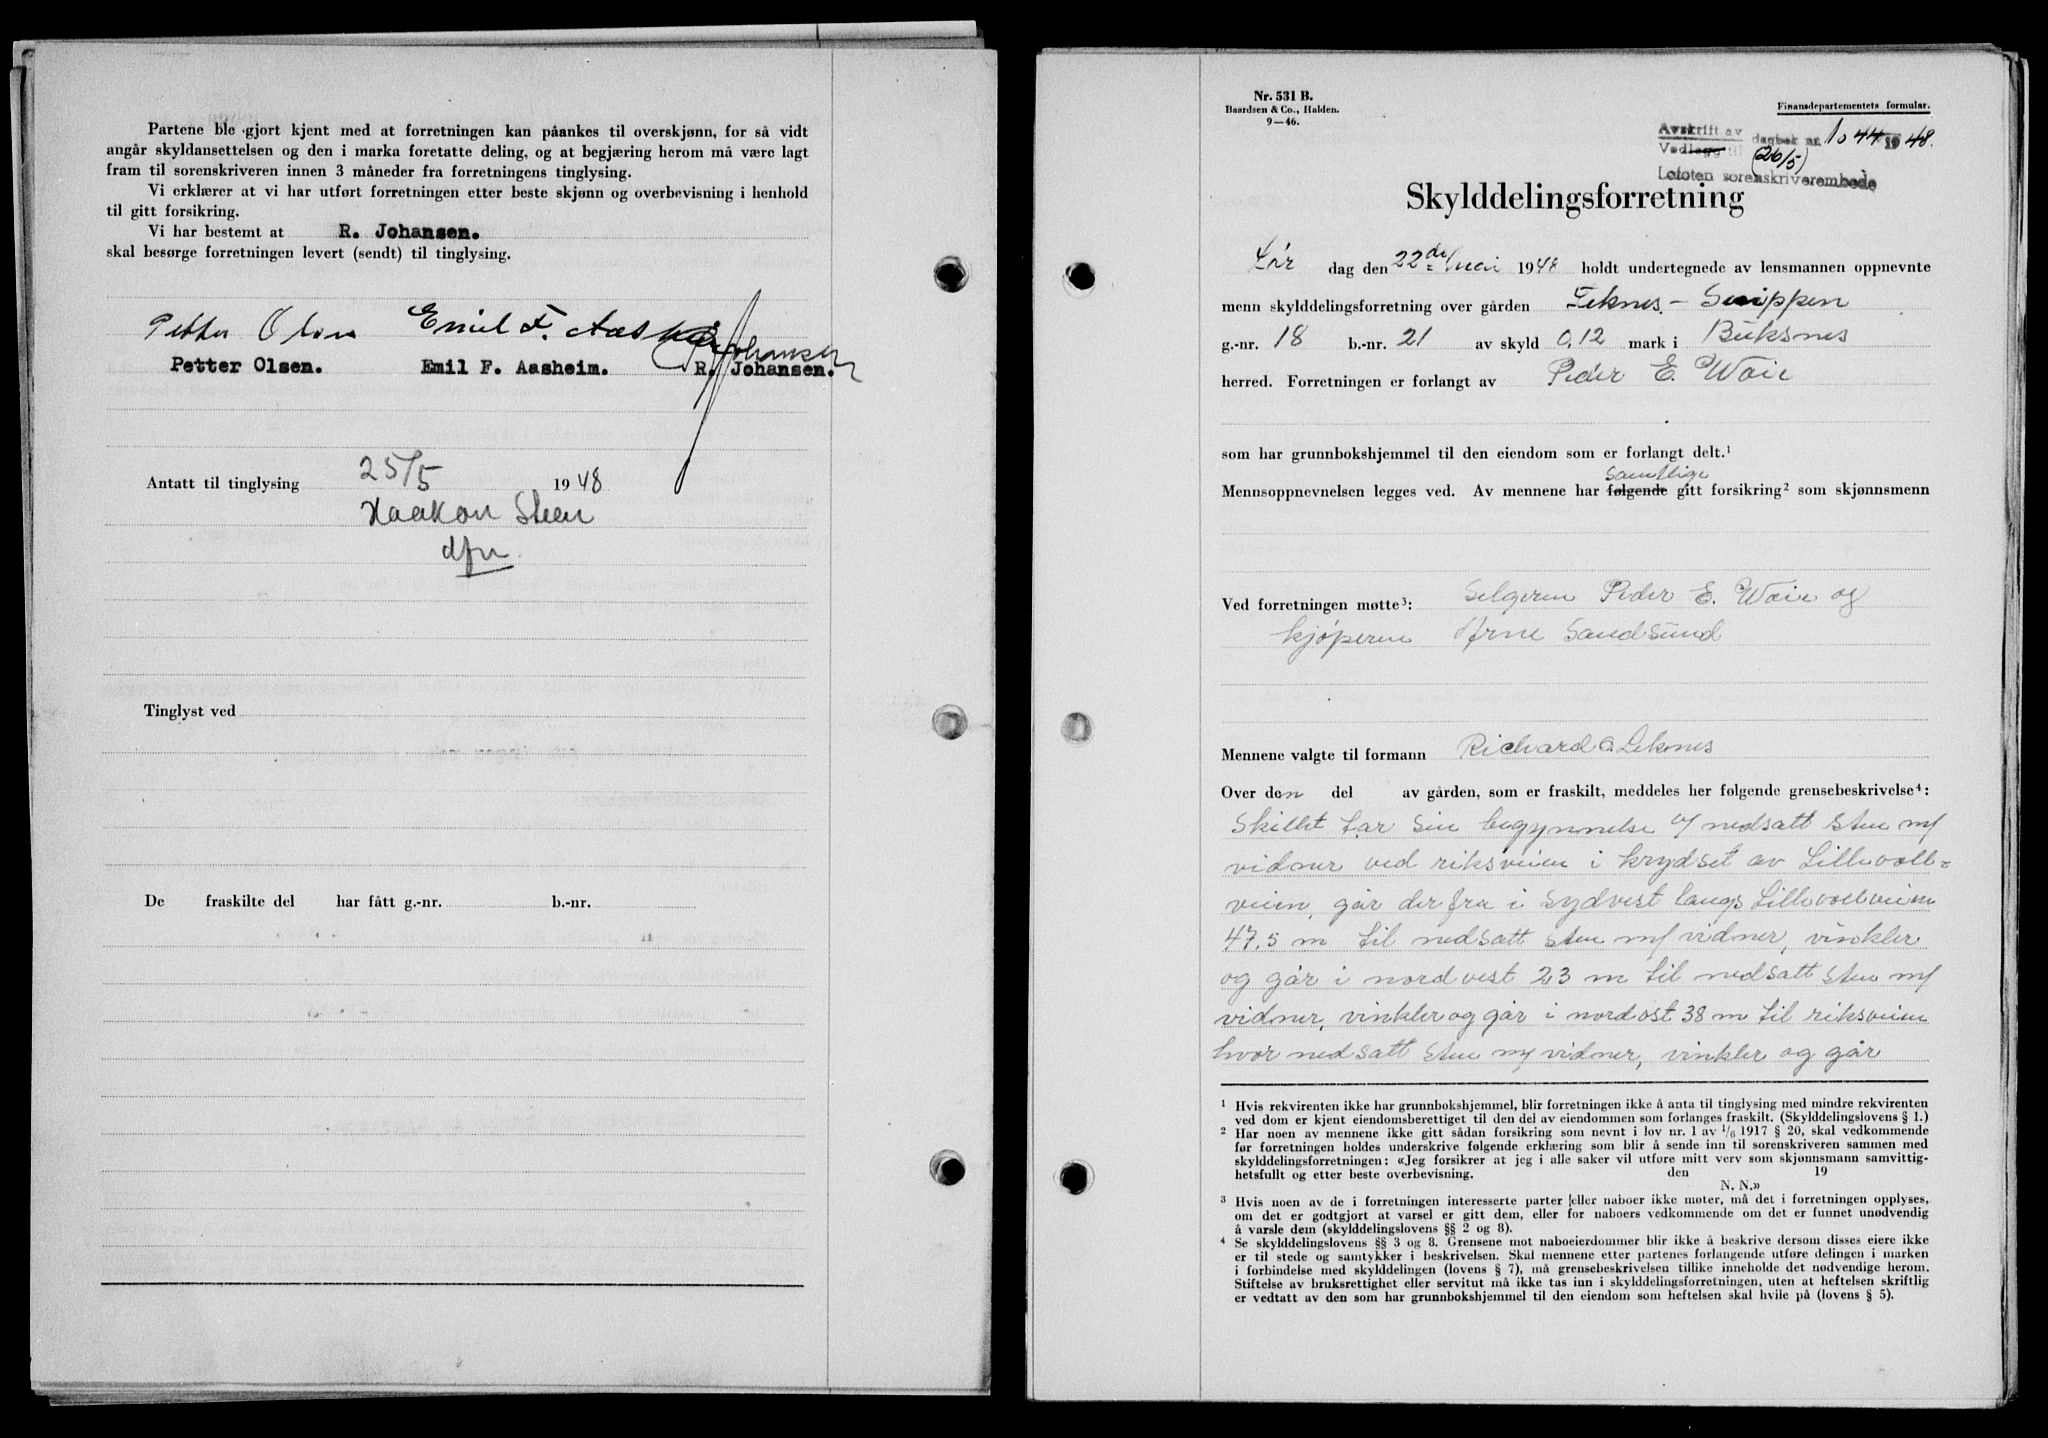 Partene ble gjort kjent med at forretningen kan påankes til overskjønn, for så vidt
angår skyldansettelsen og den i marka foretatte deling, og at begjæring herom må være lagt
fram til sorenskriveren innen 3 måneder fra forretningens tinglysing.
Vi erklærer at vi har utført forretningen etter beste skjønn og overbevisning i henhold
til gitt forsikring.
Vi har bestemt at R. Johansen.
skal besørge forretningen levert (sendt) til tinglysing.
Petter Olsen Emil F. Aasheim R Johansen
Petter Olsen. Emil F. Aasheim. R. Johansen.
Antatt til tinglysing 25/5 1948
Haakon Steen
dfm
Tinglyst ved
De fraskilte del har fått g.-nr. b.-nr.
Nr. 531 B.
Baardsen & Co., Halden.
9—46.
Finansdepartementets formular.
Avskrift av
Vedlegg til dagbok nr. 1044 1948.
(26/5)
Lofoten sorenskriverembede
Skylddelingsforretning
Lør dag den 22de mai 1948 holdt undertegnede av lensmannen oppnevnte
menn skylddelingsforretning over gården Leknes - Snippen
g.-nr. 18 b.-nr. 21 av skyld 0,12 mark i Buksnes
herred. Forretningen er forlangt av Peder E. Woie
som har grunnbokshjemmel til den eiendom som er forlangt delt.¹
samtlige
Mennsoppnevnelsen legges ved. Av mennene har følgende gitt forsikring² som skjønnsmenn
Ved forretningen møtte³: Selgeren Peder E. Woie og
kjøperen Arne Sandsund
Mennene valgte til formann Richard O. Leknes
Over den del av gården, som er fraskilt, meddeles her følgende grensebeskrivelse⁴:
Skillet tar sin begynnelse i nedsatt sten m/
vidner ved riksveien i krydset av Lillevoll=
veien, går derfra i sydvest langs Lillevollveien
47,5 m til nedsatt sten m/ vidner, vinkler
og går i nordvest 23 m til nedsatt sten m/
vidner, vinkler og går i nordost 38 m til riksveien
hvor nedsatt sten m/ vidner, vinkler og går
¹ Hvis rekvirenten ikke har grunnbokshjemmel, blir forretningen ikke å anta til tinglysing med mindre rekvirenten
ved dom er kjent eiendomsberettiget til den del av eiendommen som forlanges fraskilt. (Skylddelingslovens § 1.)
² Har noen av mennene ikke gitt sådan forsikring som nevnt i lov nr. 1 av 1/6 1917 § 20, skal vedkommende
før forretningen holdes underskrive følgende erklæring som blir å sende inn til sorenskriveren sammen med
skylddelingsforretningen: «Jeg forsikrer at jeg i alle saker vil utføre mitt verv som skjønnsmann samvittig-
hetsfullt og etter beste overbevisning. den 19
N. N.»
³ Hvis noen av de i forretningen interesserte parter eller naboer ikke møter, må det i forretningen opplyses,
om det er godtgjort at varsel er gitt dem, eller for naboers vedkommende om det er funnet unødvendig
å varsle dem (skylddelingslovens §§ 2 og 8).
⁴ Se skylddelingslovens §§ 3 og 8. Grensene mot naboeierdommer blir ikke å beskrive dersom disses eiere ikke
er til stede og samtykker i beskrivelsen. Skal mennene etter partenes forlangende utføre delingen i marken
i forbindelse med skylddelingen (lovens § 7), må grensebeskrivelsen tillike inneholde det nødvendige herom.
Stiftelse av bruksrettighet eller servitut må ikke tas inn i skylddelingsforretningen, uten at heftelsen skriftlig
er vedtatt av den som har grunnbokshjemmel til den eiendom som heftelsen skal hvile på (lovens § 5).